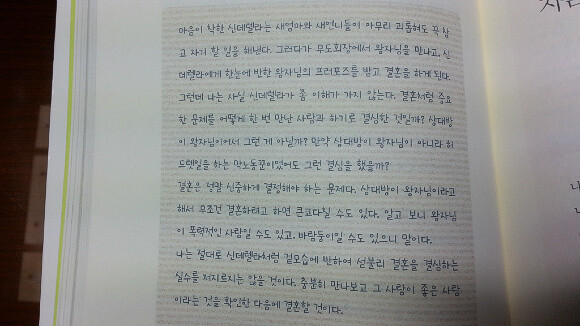 마음이 착한 신데렐라는 새엄마와 새언니들이 아무리 괴롭혀도 꾹 참
고 자기 할 일을 해낸다. 그러다가 무도회장에서 왕자님을 만나고, 신
데렐라에게 한눈에 반한 왕자님의 프러포즈를 받고 결혼을 하게 된다.
그런데 나는 사실 신데렐라가 좀 이해가 가지 않는다. 결혼처럼 중요
한 문제를 어떻게 한 번 만난 사람과 하기로 결심한 것일까? 상대방
이 왕자님이어서 그런 게 아닐까? 만약 상대방이 왕자님이 아니라 허
드렛일을 하는 막노동꾼이었어도 그런 결심을 했을까?
결혼은 정말 신중하게 결정해야 하는 문제다. 상대방이 왕자님이라고
해서 무조건 결혼하려고 하면 큰코다칠 수도 있다. 알고 보니 왕자님
이 폭력적인 사람일 수도 있고, 바람둥이일 수도 있으니 말이다.
나는 절대로 신데렐라처럼 겉모습에 반하여 섣불리 결혼을 결심하는
실수를 저지르지는 않을 것이다. 충분히 만나보고 그 사람이 좋은 사람
이라는 것을 확인한 다음에 결혼할 것이다.